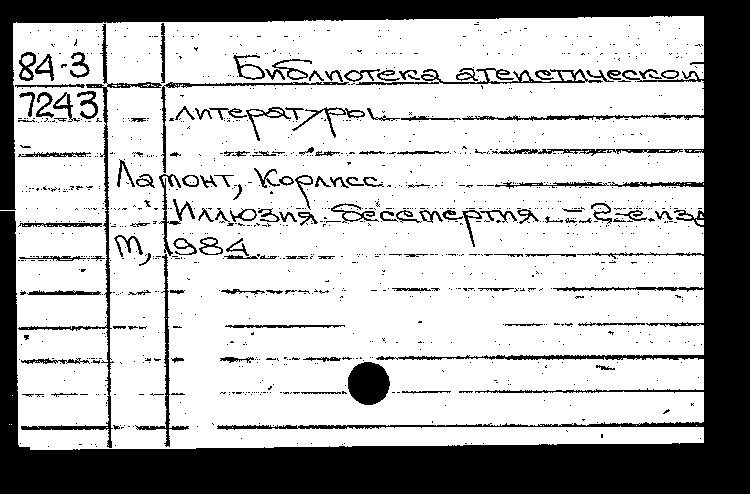 84-3 Библиотека атеистической
7243 литературы
Ламонт, Корлисс
Иллюзия бессмертия. - 2-е изд
М, 1984.